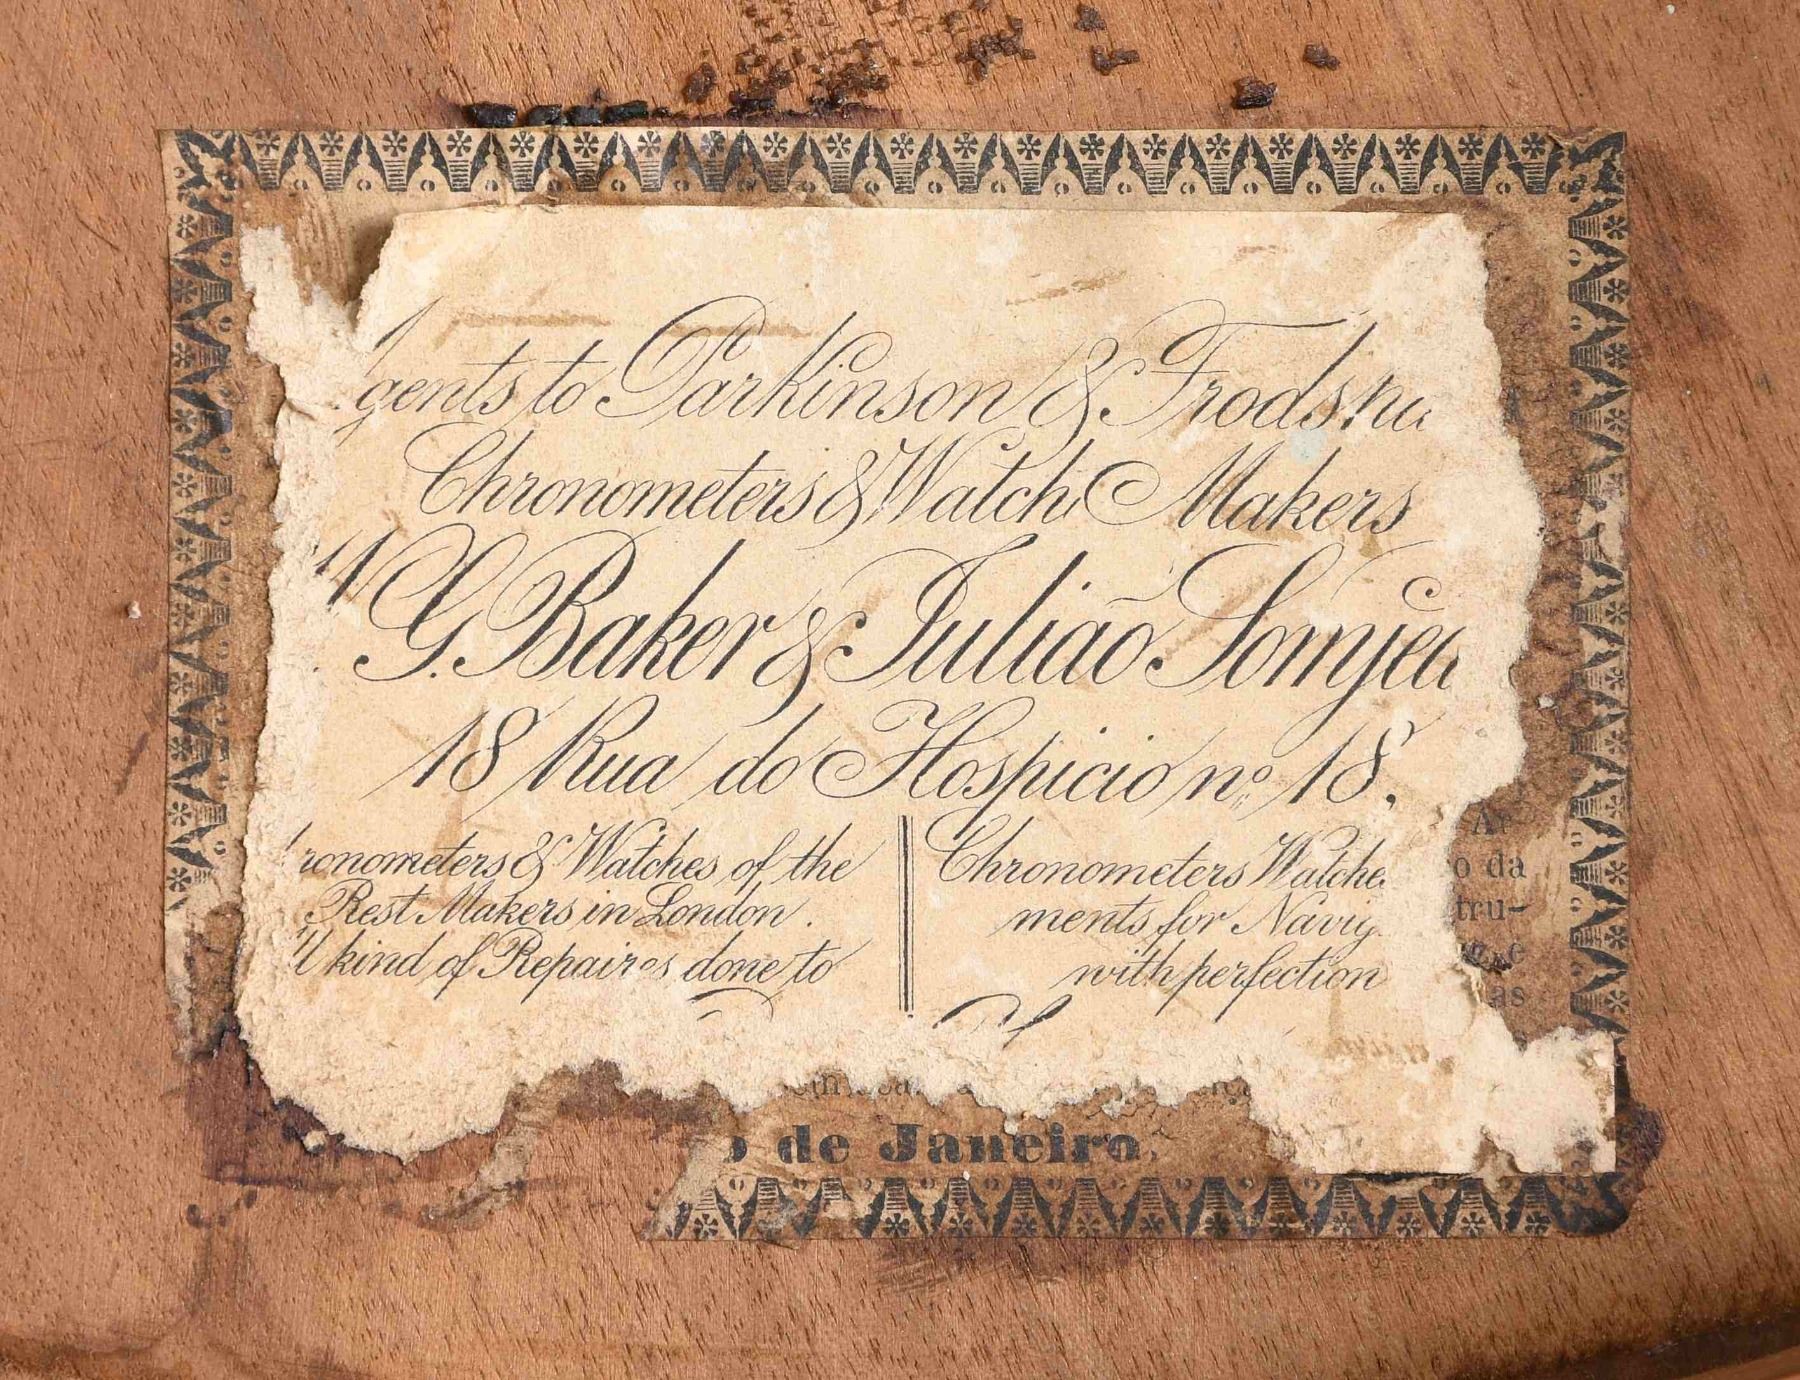 gents to Parkinson & Frodsha
Chronometers & Watch Makers
G. Baker & Julião Somjea
18 Rua do Hospicio nº 18,
ronometers & Watches of the
Best Makers in London.
ll kind of Repaires done to
Chronometers Watche
ments for Navig
with perfection
o da
tru-
as
o de Janeiro,